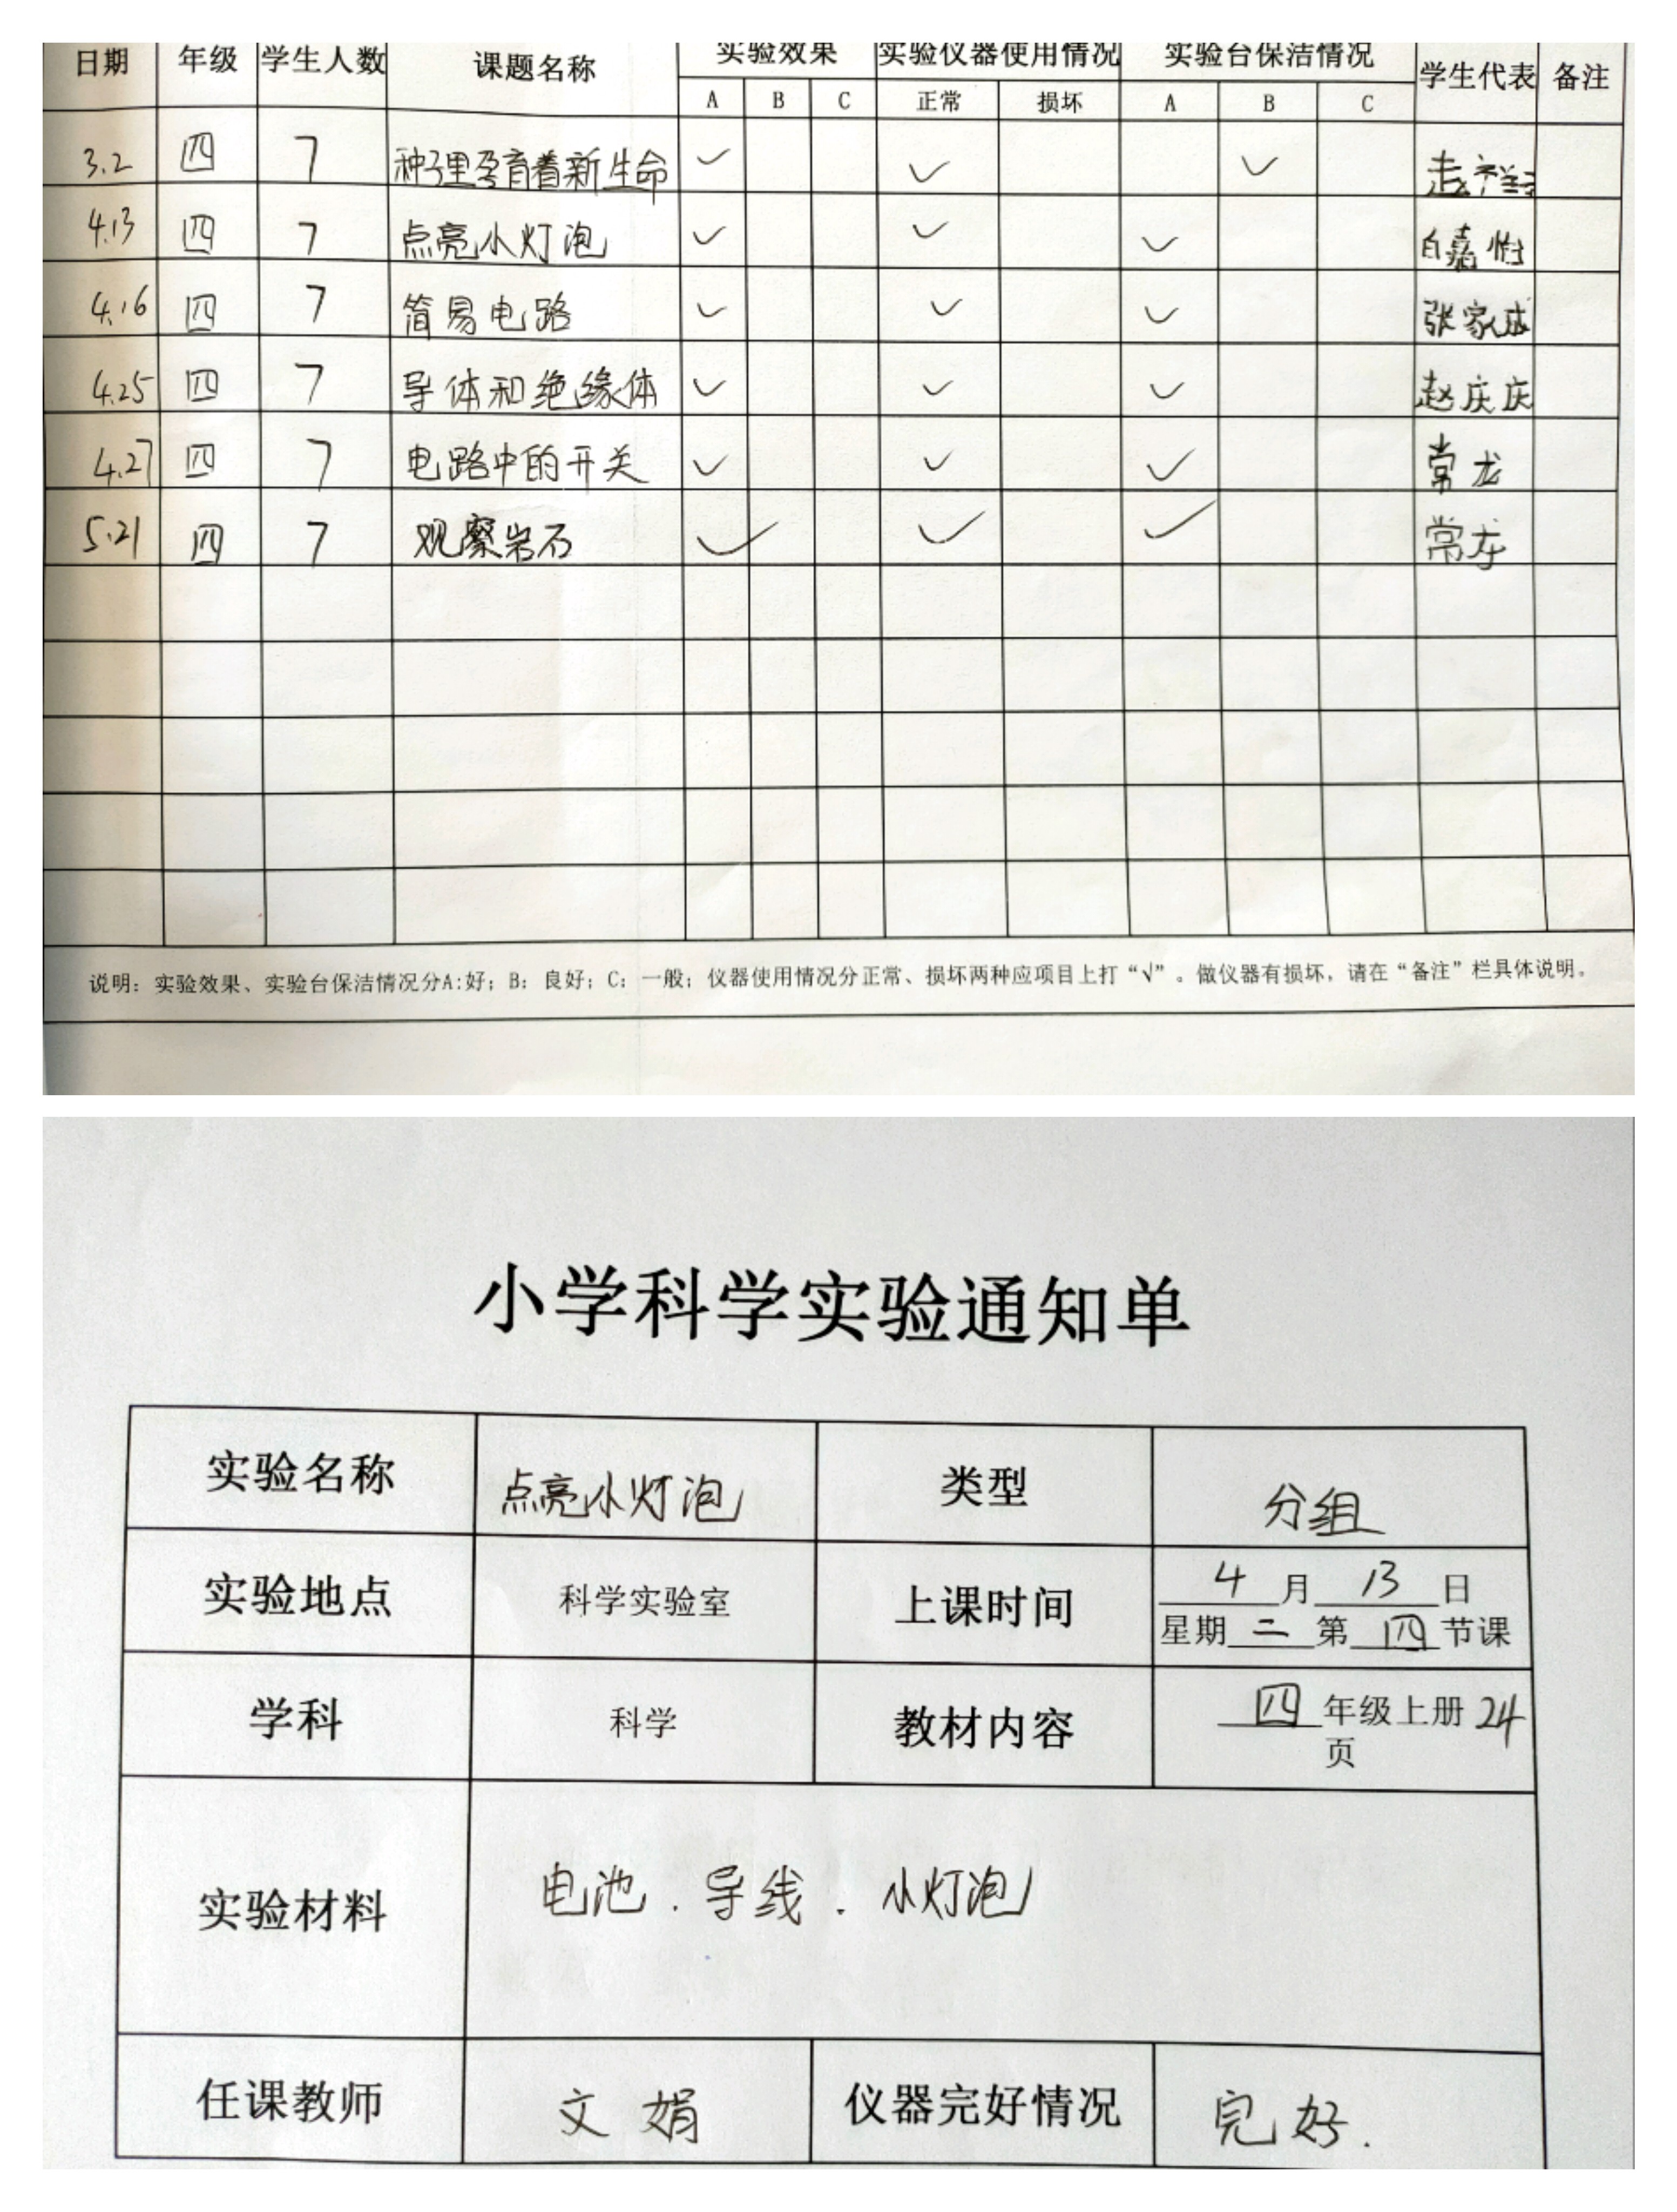 日期 年级 学生人数 课题名称 实验效果 实验仪器使用情况 实验台保洁情况 学生代表 备注
A B C 正常 损坏 A B C
3.2 四 7 种子里孕育着新生命 ✓ ✓ ✓
4.13 四 7 点亮小灯泡 ✓ ✓ ✓ 白嘉怡
4.16 四 7 简易电路 ✓ ✓ ✓ 张家成
4.25 四 7 导体和绝缘体 ✓ ✓ ✓ 赵庆庆
4.27 四 7 电路中的开关 ✓ ✓ ✓ 常龙
5.21 四 7 观察岩石 ✓ ✓ ✓ 常龙
说明：实验效果、实验台保洁情况分A:好；B：良好；C：一般；仪器使用情况分正常、损坏两种应项目上打“√”。做仪器有损坏，请在“备注”栏具体说明。
小学科学实验通知单
实验名称 点亮小灯泡 类型 分组
实验地点 科学实验室 上课时间 4月13日
星期二第四节课
学科 科学 教材内容 四年级上册24
页
实验材料 电池.导线.小灯泡
任课教师 文娟 仪器完好情况 完好.